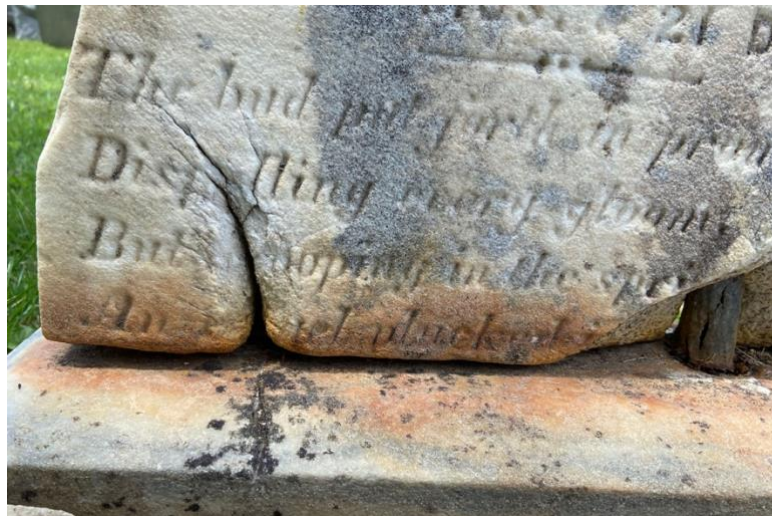 21 D
The bud put forth in prom
Disp lling every gloom;
But ooping in the spri
An el plucked